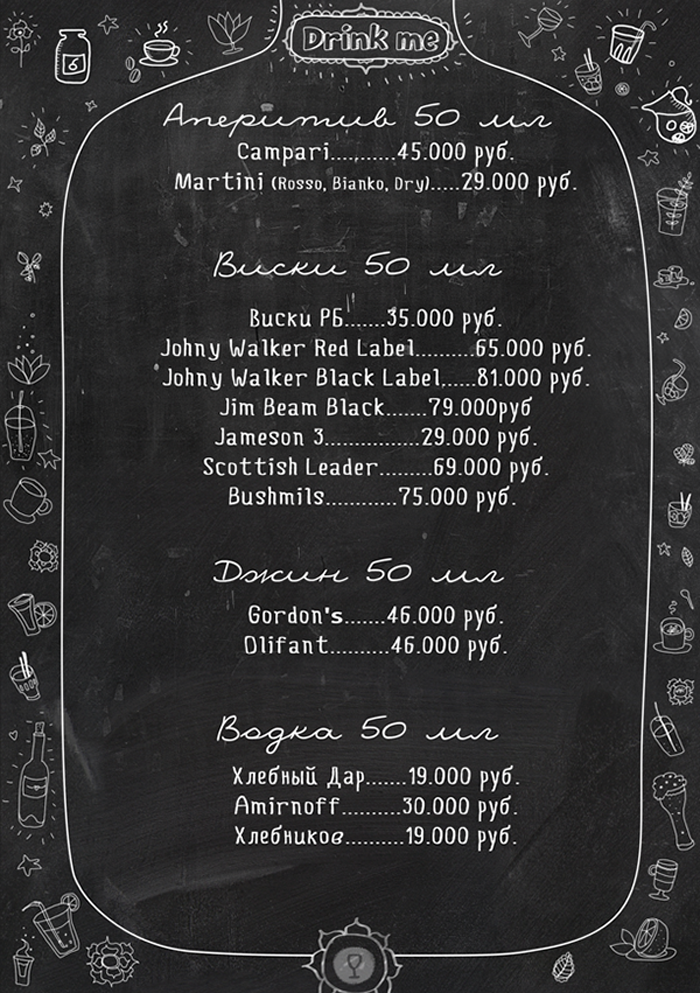 Drink me
Аперитив 50 мл
Campari...........45.000 руб.
Martini (Rosso, Bianko, Dry).....29.000 руб.
Виски 50 мл
Виски РБ.......35.000 руб.
Johny Walker Red Label..........65.000 руб.
Johny Walker Black Label......81.000 руб.
Jim Beam Black.......79.000руб
Jameson 3................29.000 руб.
Scottish Leader.........69.000 руб.
Bushmils............75.000 руб.
Джин 50 мл
Gordon's.......46.000 руб.
Olifant..........46.000 руб.
Водка 50 мл
Хлебный Дар.......19.000 руб.
Amirnoff..........30.000 руб.
Хлебников..........19.000 руб.